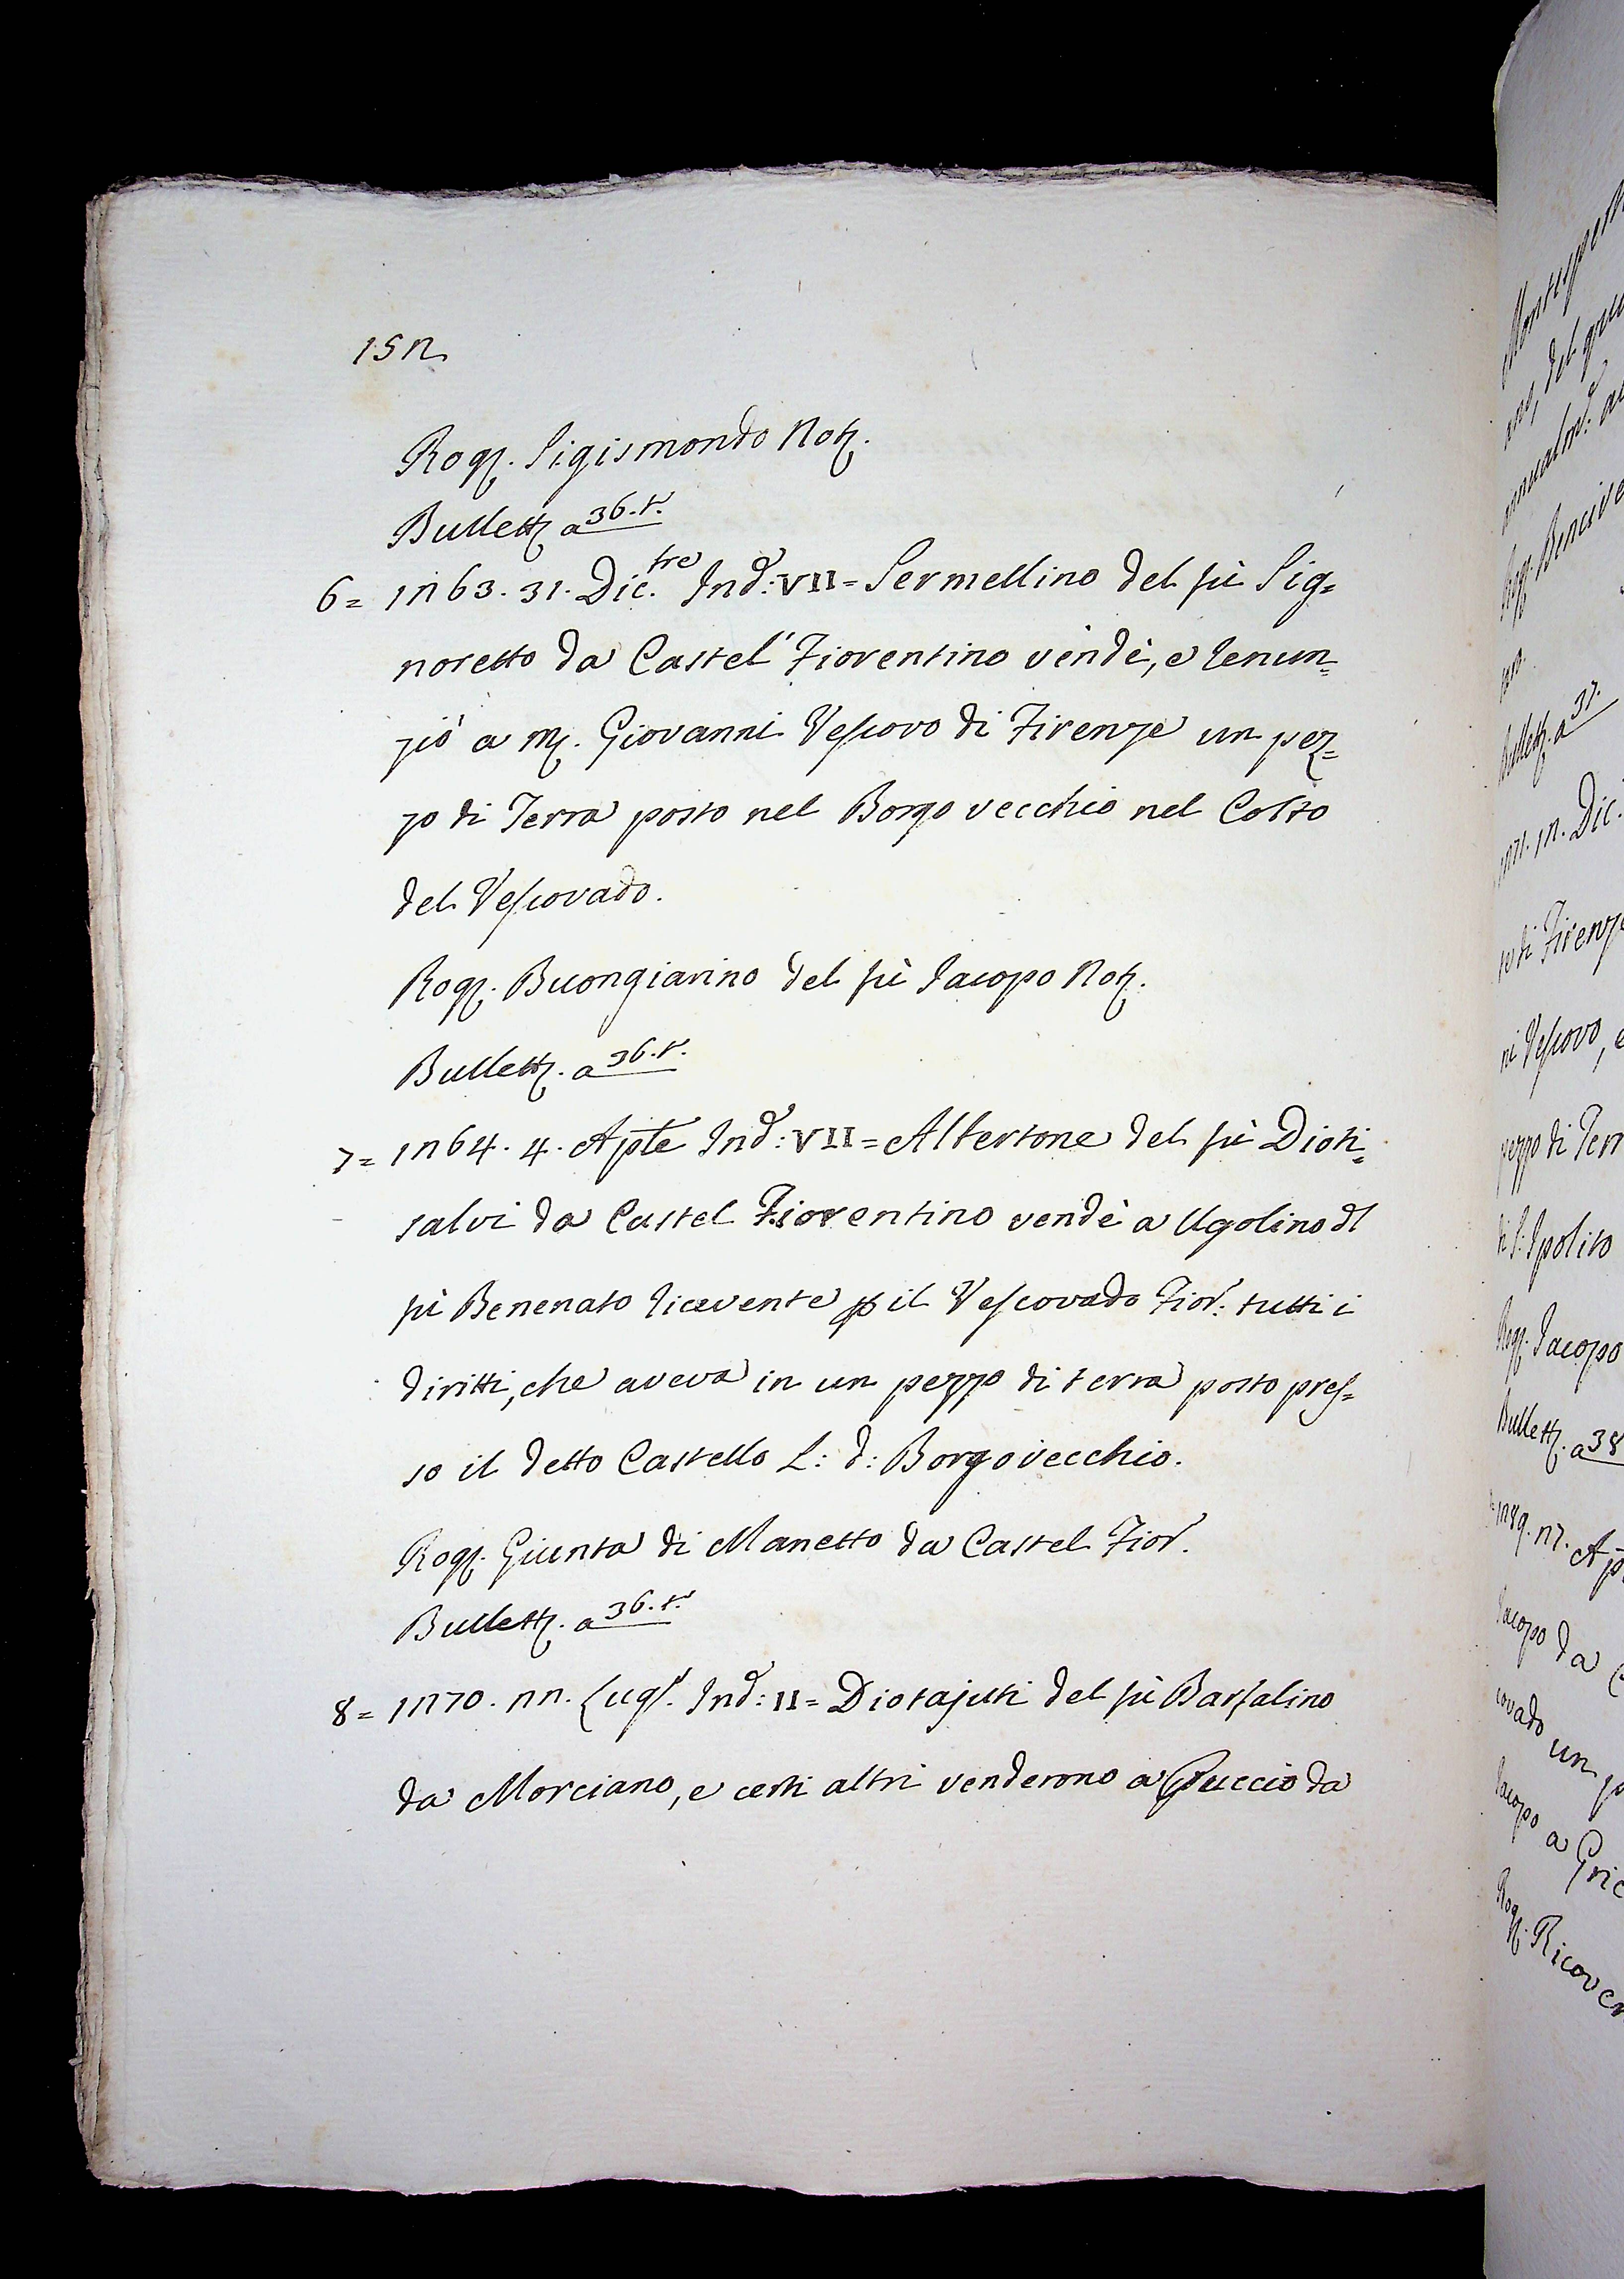 152
Rog. Sigismondo Not.
Bullett. a 36. t.
6 = 1263. 31. Dic.tre Ind: VII = Sermellino del fù Sig=
noretto da Castel Fiorentino vendè, e renun=
ziò a M. Giovanni Vescovo di Firenze un pez=
zo di Terra posto nel Borgo vecchio nel Colto
del Vescovado.
Rog. Buongiarino del fù Jacopo Not.
Bullett. a 36. t.
7 = 1264. 4. Aple Ind: VII = Albertone del fù Dioti=
salvi da Castel Fiorentino vendè a Ugolino dl
fù Benenato ricevente p il Vescovado Fior: tutti i
diritti, che aveva in un pezzo di terra posto pres=
so il detto Castello L: d: Borgovecchio.
Rog. Giunta di Manetto da Castel Fior.
Bullett. a 36. t.
8 = 1270. 22. Lugl. Ind: II = Diotajuti del fù Barfalino
da Morciano, e certi altri venderono a Puccio da
Bullett. a 37.
di Firenze
ni Vescovo,
pezzo di Terr
di S: Ipolito
Rog. Jacopo
Bullett. a 38
1289. 27. Ap
Jacopo da C
covado un p
Jacopo a Gric
Rog. Ricover